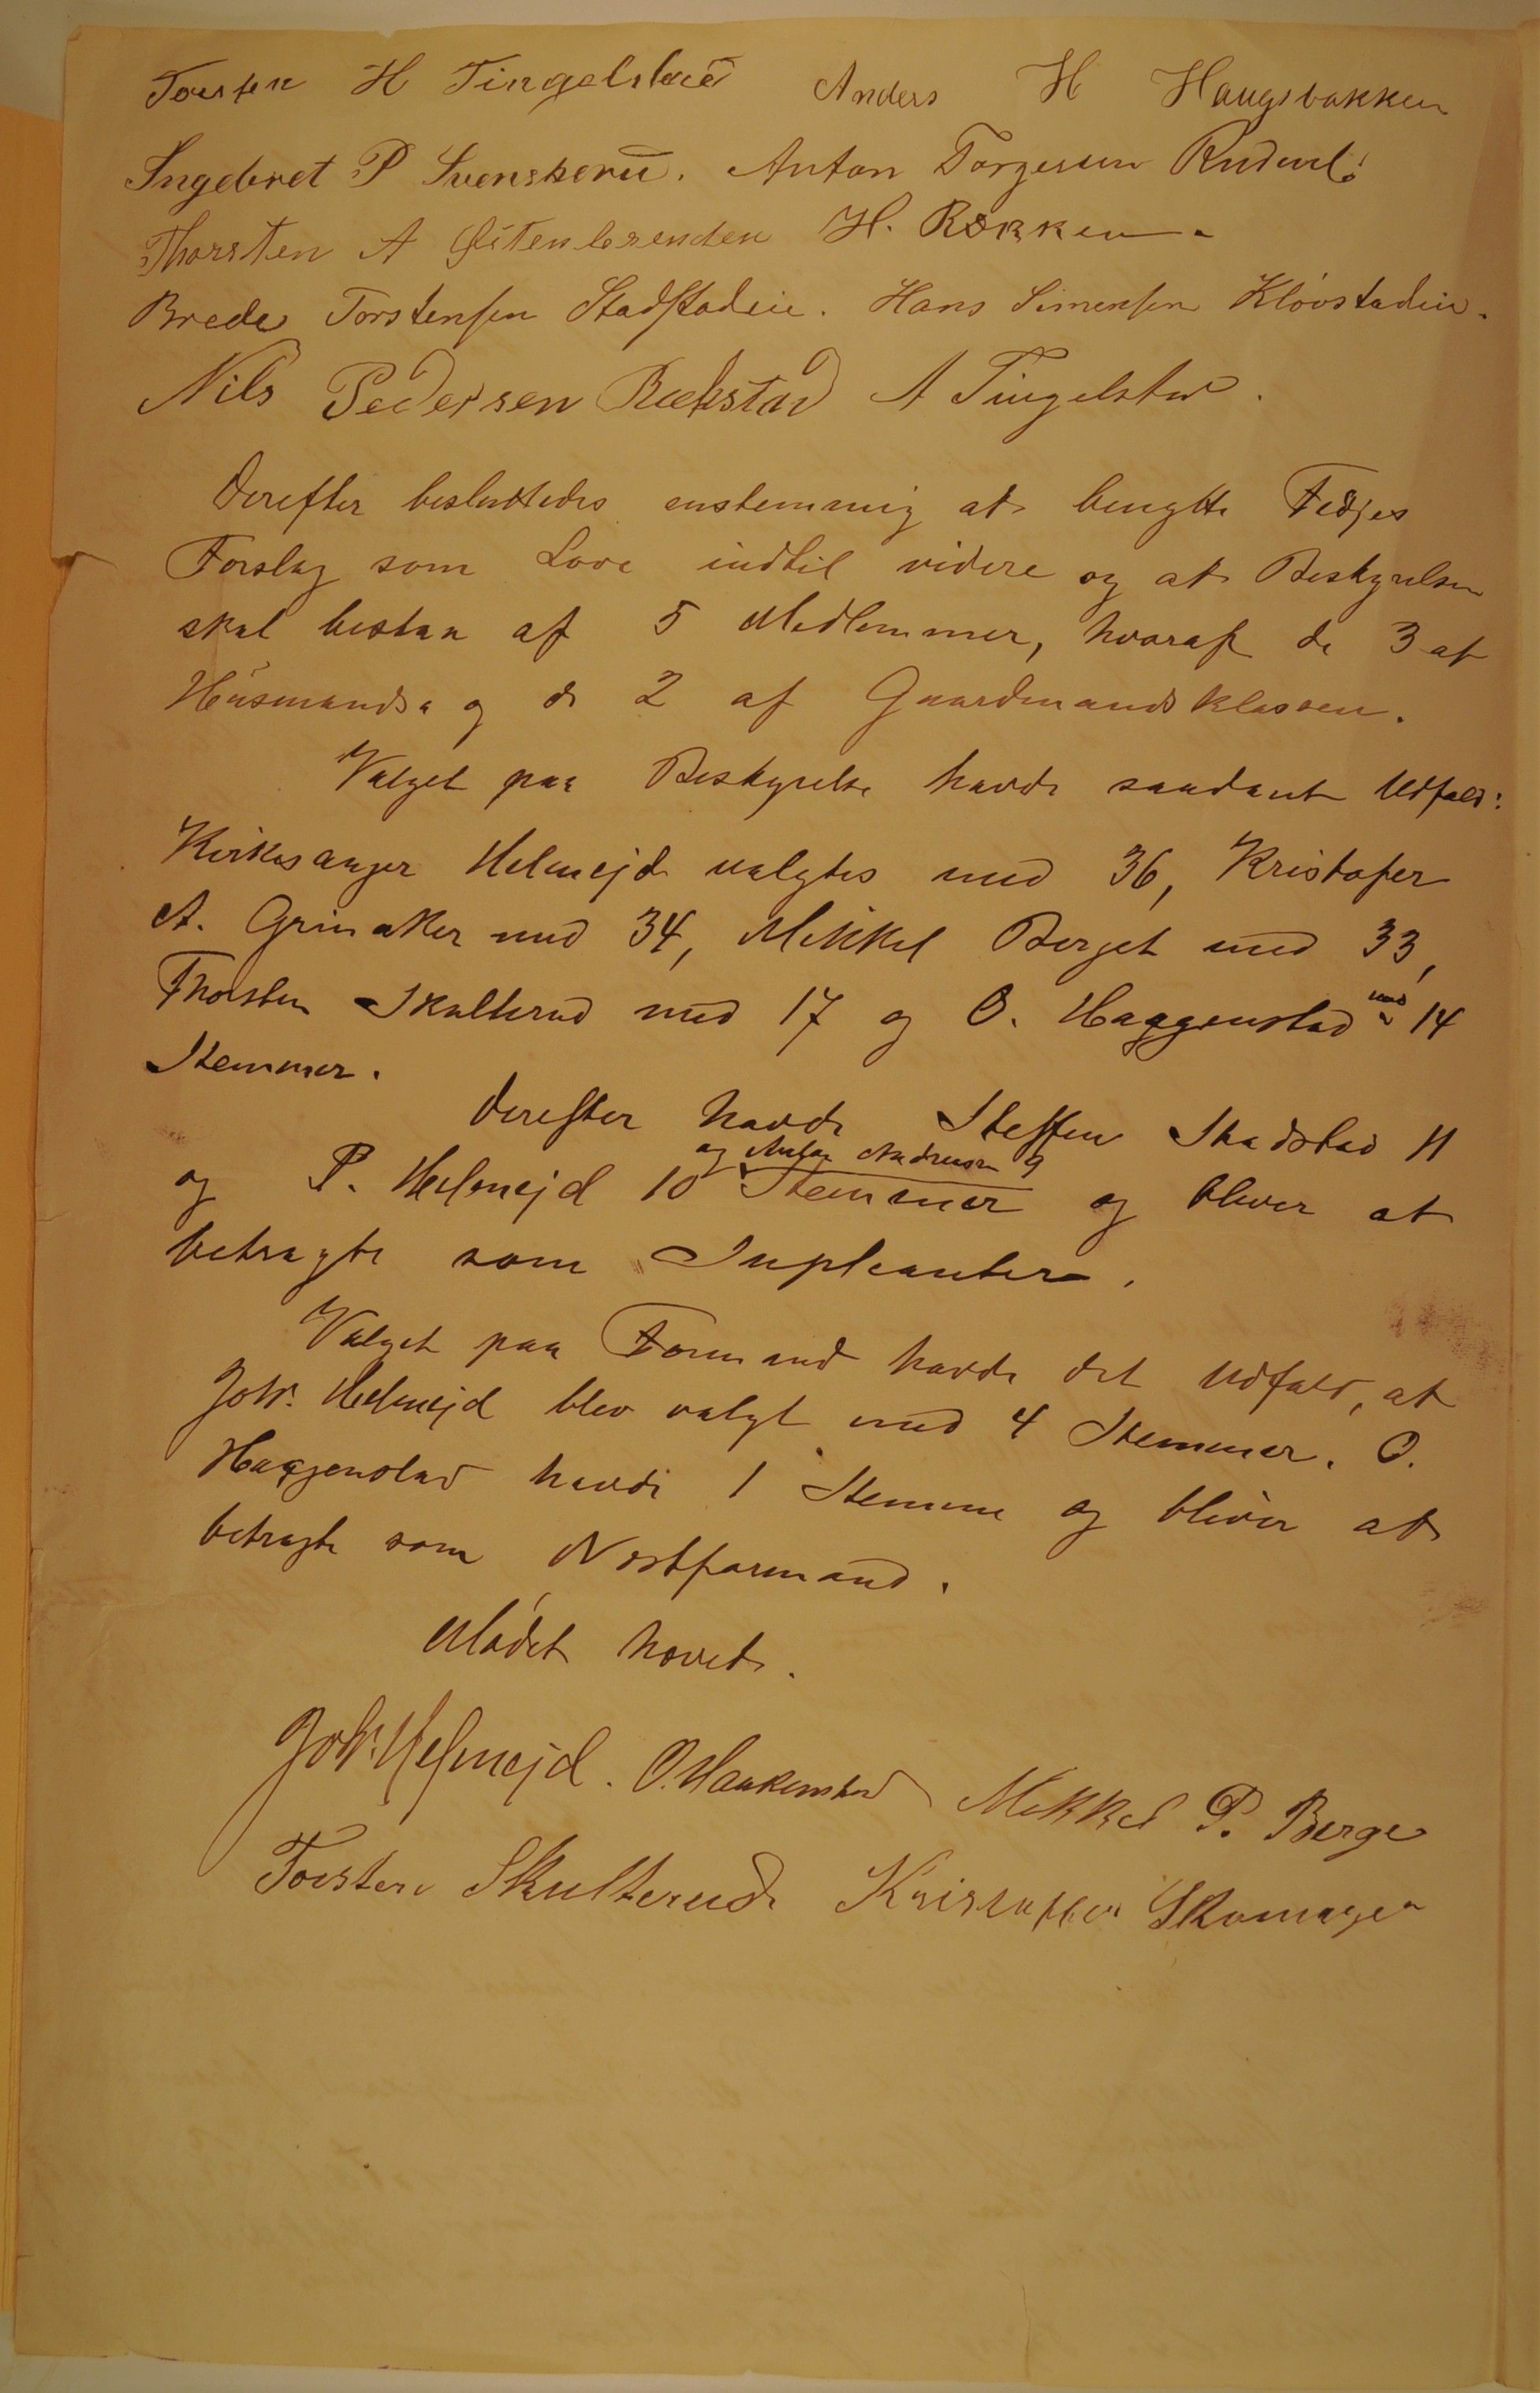 Torsten H Tingelstad Anders H Haugsbakken
Ingebret P Svenskerud. Anton Torgersen Ruderud
Thorsten A H. Røkken
Brede Torstensen Stadstadeie. Hans Simensen Kløvstadeie.
Nils Pedersen Rækstad A Tingelstad.
Derefter besluttedes enstemmig at benytte Fedjes
Forslag som Love indtil videre og at Bestyrelsen
skal bestaa af 5 Medlemmer, hvoraf de 3 af
Husmands- og de 2 af Gaardmandsklassen.
Valget paa Bestyrelse havde saadant Udfald:
Kirkesanger Helmejd valgtes med 36, Kristofer
A. Grinaker med 34, Mikkel Berget med 33,
Thorsten Skulterud med 17 og O. Haagenstad med 14
Stemmer.
Derefter havde Steffen Stadstad 11
og P. Helmejd 10 og Andresen 9 Stemmer og bliver at
betragte som Supleanter.
Valget paa Formand havde det Udfald, at
Joh. Helmejd blev valgt med 4 Stemmer. O.
Haagenstad havde 1 Stemme og bliver at
betragte som Næstformand.
Mødet hævet.
Joh. Helmejd. O. Haakenstad Mikkel P. Berge
Torsten Skulterud Kristoffer Skomager